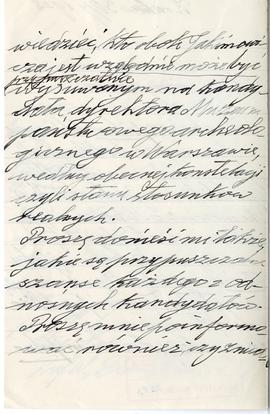 wiedzieć, kto obok Jakimowi-
cza jest względnie może być
przypuszczalnie
wysuwanym na kandy-
data, dyrektora Muzeum
państwowego archeolo-
gicznego w Warszawie,
według obecnej konstelacji
czyli stanu stosunków
realnych.
Proszę donieść mi także,
jakie są przypuszczalne
szanse każdego z od-
nośnych kandydatów
Proszę mnie poinformo-
wać również, czy